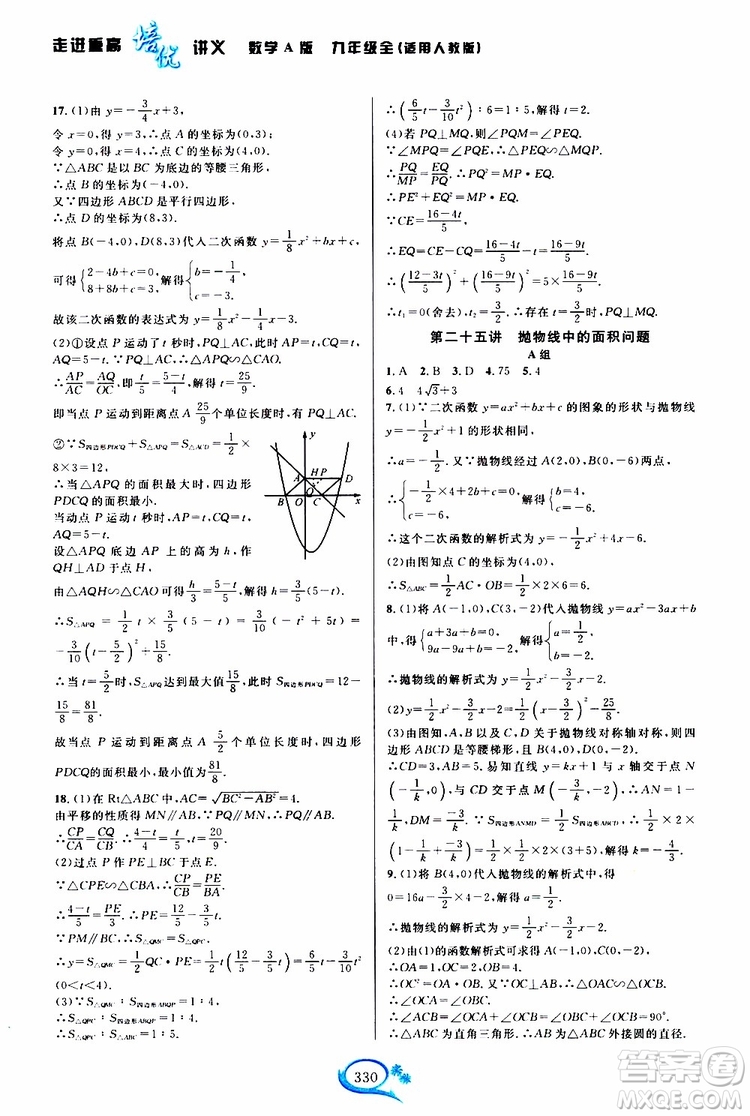 走进重高 培优 讲义 数学A版 九年级全(适用人教版)
17.(1)由 y=-3/4x+3,
令 x=0,得 y=3,∴点 A 的坐标为(0,3);
令 y=0,得 x=4,∴点 C 的坐标为(4,0).
∵△ABC 是以 BC 为底边的等腰三角形,
∴点 B 的坐标为(-4,0).
又∵四边形 ABCD 是平行四边形,
∴点 D 的坐标为(8,3).
将点 B(-4,0),D(8,3)代入二次函数 y=1/8x²+bx+c,
可得{2-4b+c=0, 8+8b+c=3,解得{b=-1/4, c=-3.
故该二次函数的表达式为 y=1/8x²-1/4x-3.
(2)①设点 P 运动了 t 秒时,PQ⊥AC,此时 AP=t,CQ=t,
AQ=5-t.∵PQ⊥AC,∴△APQ∽△CAO.
∴AP/AC=AQ/OC,即t/5=(5-t)/4,解得 t=25/9.
即当点 P 运动到距离点 A 25/9 个单位长度时,有 PQ⊥AC.
②∵S四边形PDCQ+S△APQ=S△ACD=1/2×
8×3=12,
∴当△APQ 的面积最大时,四边形
PDCQ 的面积最小.
当动点 P 运动 t 秒时,AP=t,CQ=t,
AQ=5-t.
设△APQ 底边 AP 上的高为 h,作
QH⊥AD 于点 H,
由△AQH∽△CAO可得h/3=(5-t)/5,解得 h=3/5(5-t).
∴S△APQ=1/2t×3/5(5-t)=3/10(-t²+5t)=
-3/10(t-5/2)²+15/8.
∴当 t=5/2时,S△APQ达到最大值15/8,此时S四边形PDCQ=12-
15/8=81/8.
故当点 P 运动到距离点 A 5/2个单位长度时,四边形
PDCQ的面积最小,最小值为81/8.
18.(1)在 Rt△ABC 中,AC=√(BC²-AB²)=4.
由平移的性质得 MN∥AB.∵PQ∥MN,∴PQ∥AB.
∴CP/CA=CQ/CB.∴(4-t)/4=t/5,解得 t=20/9.
(2)过点 P 作 PE⊥BC 于点 E.
∵△CPE∽△CBA,∴CP/CB=PE/BA.
∴(4-t)/5=PE/3.∴PE=(12-3t)/5.
∵PM∥BC,∴S△QMC=S△QPC.
∴y=S△QMC=1/2QC·PE=1/2t·(12-3t)/5=6/5t-3/10t²
(0<t<4).
(3)∵S△QMC∶S四边形ABQP=1∶4,
∴S△QPC∶S四边形ABQP=1∶4.
∴S△QPC∶S△ABC=1∶5.
A H P D B O Q C x y
∴(6/5t-3/10t²)∶6=1∶5.解得 t=2.
(4)若 PQ⊥MQ,则∠PQM=∠PEQ.
∵∠MPQ=∠PQE,∴△PEQ∽△MQP.
∴PQ/MP=EQ/PQ.∴PQ²=MP·EQ.
∴PE²+EQ²=MP·EQ.
∵CE=(16-4t)/5,
∴EQ=CE-CQ=(16-4t)/5-t=(16-9t)/5.
∴((12-3t)/5)²+((16-9t)/5)²=5×(16-9t)/5.
∴t₁=0(舍去),t₂=3/2.∴存在 t=3/2.
第二十五讲 抛物线中的面积问题
A组
1.A 2.B 3.D 4.75 5.4
6.4 4√3+3
7.(1)∵二次函数 y=ax²+bx+c 的图象的形状与抛物线
y=-1/2x²相同,且开口向下,
∴a=-1/2.又∵抛物线经过 A(2,0),B(0,-6)两点,
∴{-1/2×4+2b+c=0, c=-6,解得{b=4, c=-6.
∴这个二次函数的解析式为 y=-1/2x²+4x-6.
(2)由图知点 C 的坐标为(4,0),AC=2,OB=6,
∴S△ABC=1/2×2×6=6.
8.(1)将 A(-1,0),B(3,-2)代入抛物线 y=ax²-3ax+b
中,得{a+3a+b=0, 9a-9a+b=-2,解得{a=1/2, b=-2.
∴抛物线的解析式为 y=1/2x²-3/2x-2.
(2)y=1/2x²-3/2x-2=1/2(x-3/2)²-25/8.
(3)由题知,A,D 以及 B,C 关于抛物线对称轴对称,则四
边形 ABCD 是等腰梯形,
∴CD=3,AB=5.易知直线 y=kx+1 与 x 轴交于点 N
(-1/k,0),与 CD 交于点 M(-3/k,-2),∴AN=1-
1/k,DM=-3/k.∵S四边形ANMD=1/2S四边形ABCD,
(1-1/k-3/k)×2×1/2=1/2×2×(3+5)×1/2,解得 k=-4/3.
9.(1)将 B(4,0)代入抛物线的解析式中,得
0=16a-3/2×4-2.解得 a=1/2.
∴抛物线的解析式为 y=1/2x²-3/2x-2.
(2)由(1)的函数解析式可得 A(-1,0),C(0,-2).
∴OA=1,OC=2,OB=4.
∴OC²=OA·OB.又∵OC⊥AB,∴△OAC∽△OCB.
∴∠OCA=∠OBC.
∴∠ACB=∠OCA+∠OCB=∠OBC+∠OCB=90°.
∴△ABC 为直角三角形,AB 为△ABC 外接圆的直径.
330
答案圈
MXQE.COM